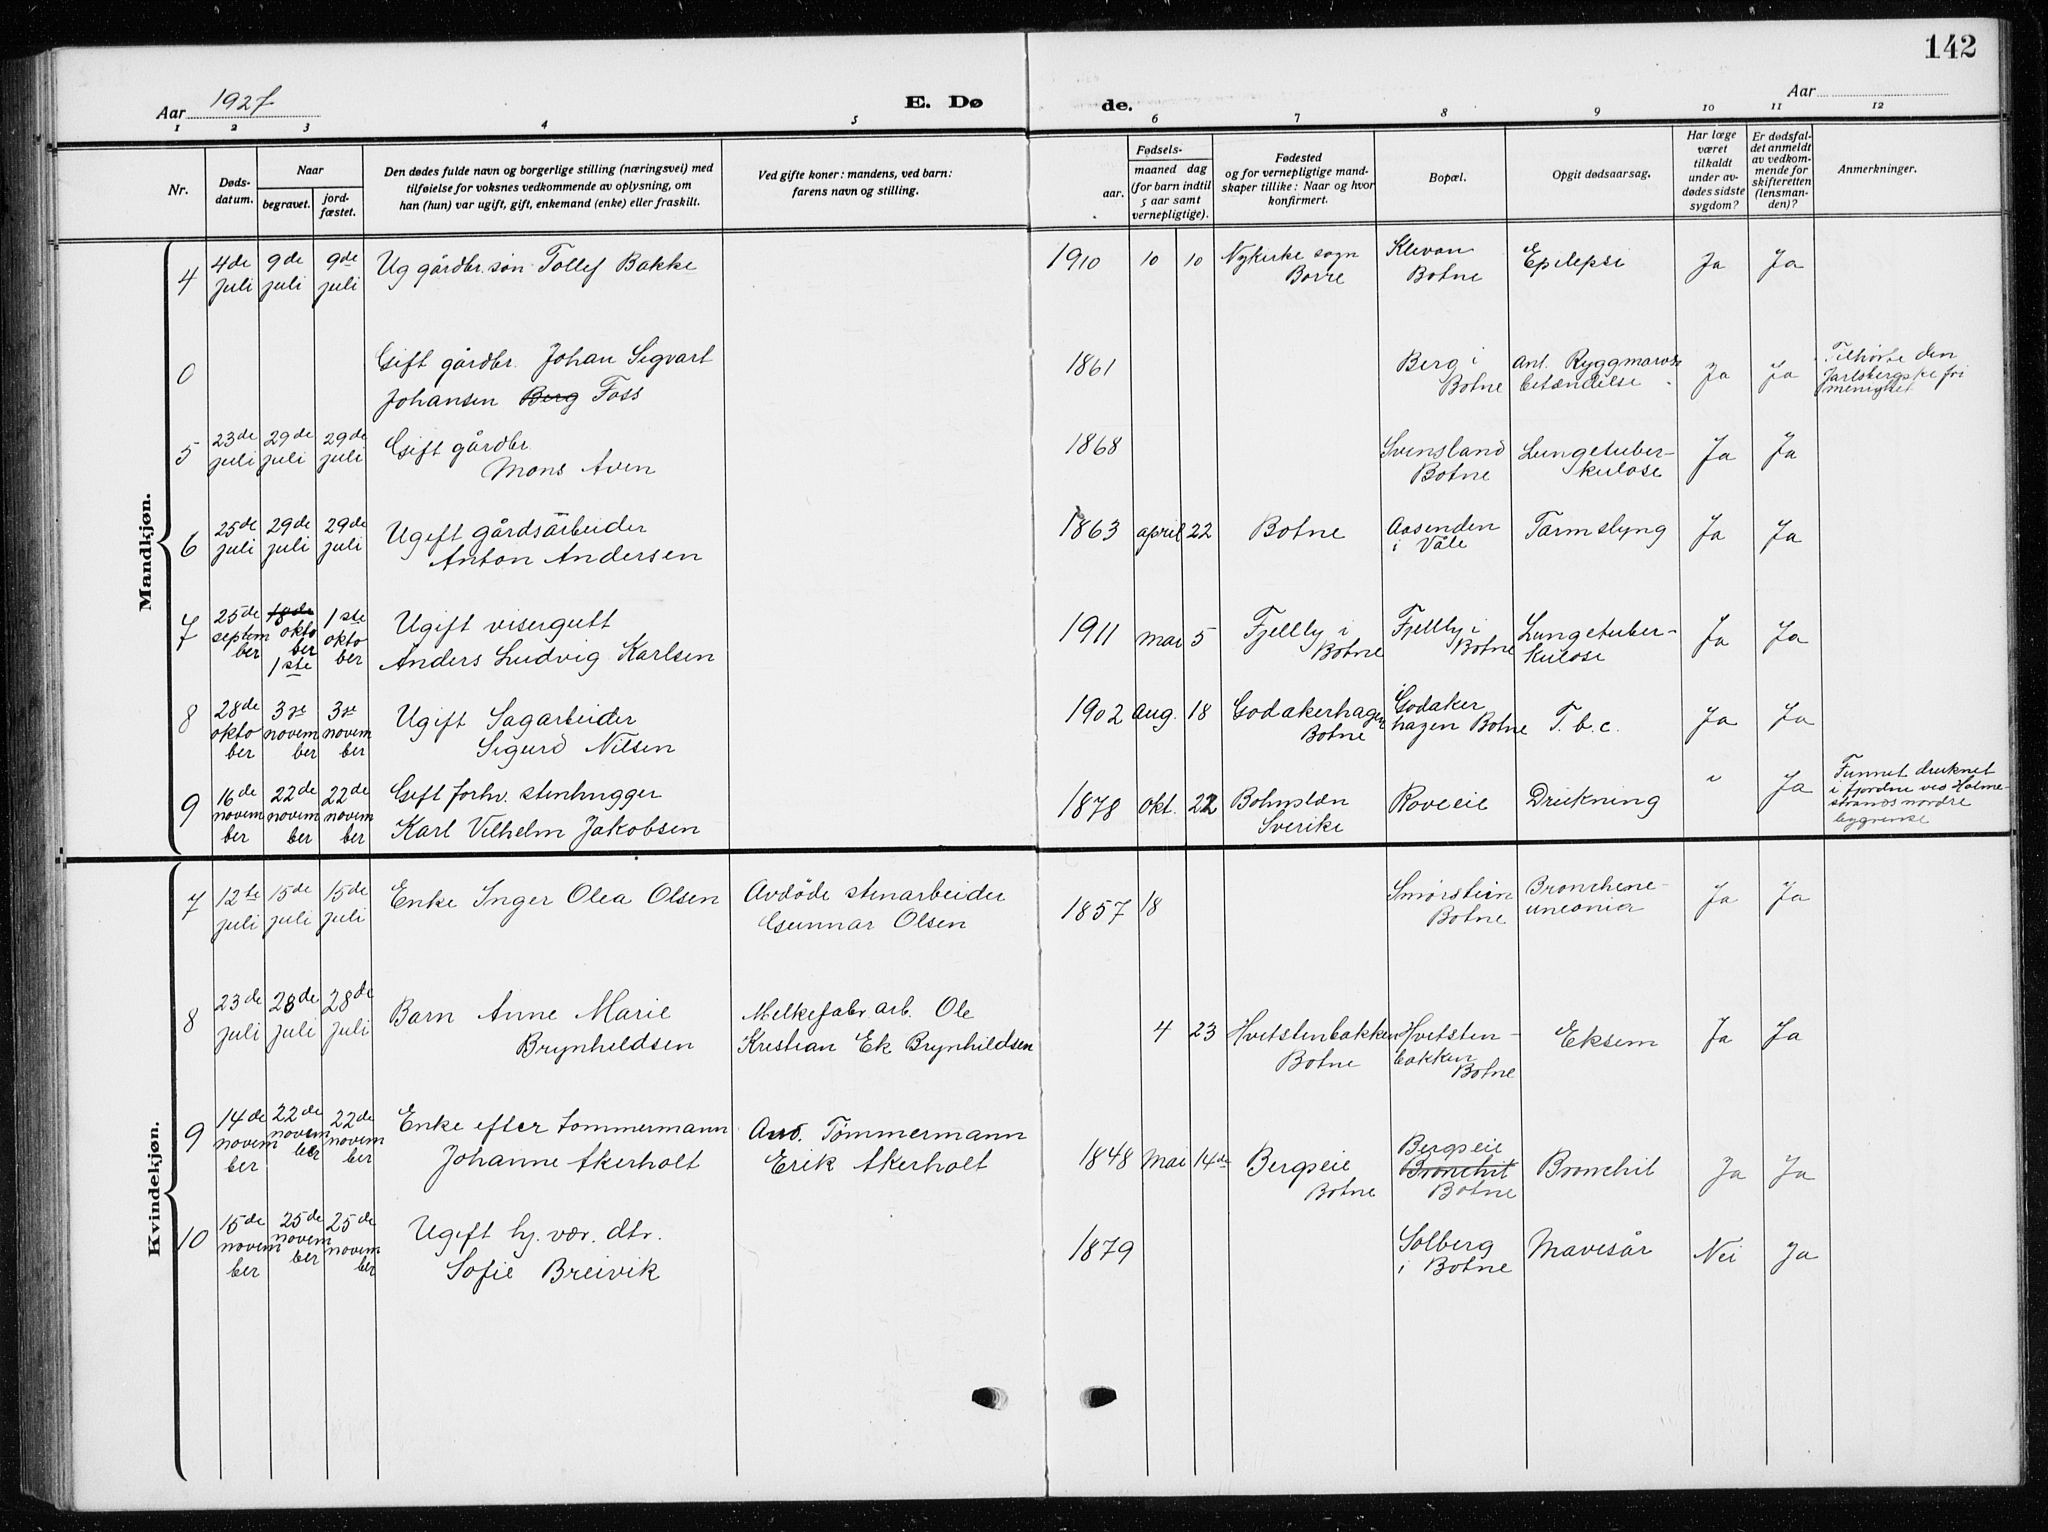 142
Aar 1927
E. Dø
de.
Aar
1 2 3 4 5 6 7 8 9 10 11 12
Nr.
Døds-
datum.
Naar
begravet.
jord-
fæstet.
Den dødes fulde navn og borgerlige stilling (næringsvei) med
tilføielse for voksnes vedkommende av oplysning, om
han (hun) var ugift, gift, enkemand (enke) eller fraskilt.
Ved gifte koner: mandens, ved barn:
farens navn og stilling.
Fødsels-
aar.
maaned dag
(for barn indtil
5 aar samt
vernepligtige).
Fødested
og for vernepligtige mand-
skaper tillike: Naar og hvor
konfirmert.
Bopæl.
Opgit dødsaarsag.
Har læge
været
tilkaldt
under av-
dødes sidste
sygdom?
Er dødsfal-
det anmeldt
av vedkom-
mende for
skifteretten
(lensman-
den)?
Anmerkninger.
Mandkjøn.
4
4de juli
9de juli
9de juli
Ug gårdbr. søn Tollef Bakke
1910 10 10
Nykirke sogn
Borre
Klevan
Botne
Epilepsi
Ja
Ja
0
Gift gårdbr. Johan Segvart
Johansen Berg Foss
1861
Berg i
Botne
Ant. Ryggmarvs
betændelse.
Ja
Ja
Tilhørte den
Jarlsbergske fri
menighet
5
23de juli
29de juli
29de juli
Gift gårdbr
Mons Aven
1868
Svensland
Botne
Lungetuber-
kulose
Ja
Ja
6
25de juli
29de juli
29de juli
Ugift gårdsarbeider
Anton Andersen
1863 april 22
Botne
Aasenden
i Våle
Tarmslyng
Ja
Ja
7
25de septem ber
18de okto ber 1ste
1ste okto ber
Ugift visergutt
Anders Ludvig Karlsen
1911 mai 5
Fjellly i
Botne
Fjellly i
Botne
Lungetuber-
kulose
Ja
Ja
8
28de okto ber
3je novem ber
3je novem ber
Ugift Sagarbeider
Sigurd Nilsen
1902 aug. 18
Godakerhagen
Botne
Godaker
hagen Botne
T.b.c.
Ja
Ja
9
16de novem ber
22de novem ber
22de novem ber
Gift forhv. stenhugger
Karl Vilhelm Jakobsen
1878 okt. 22
Bohuslæn
Sverike
Roveeie
Drukning
Ja
Funnet druknet
i fjorden ved Holme-
strands nordre
bygrense
Kvindekjøn.
7
12te juli
15de juli
15de juli
Enke Inger Olea Olsen
Avdöde stenarbeider
Gunnar Olsen
1857 18
Smørstein
Botne
Bronchene-
umonia
Ja
Ja
8
23de juli
28de juli
28de juli
Barn Anne Marie
Brynheldsen
Melkefabr. arb. Ole
Kristian Ek Brynhildsen
4 23
Hvitstenbakken
Botne
Hvitsten-
bakken
Botne
Eksem
Ja
Ja
9
14de novem ber
22de novem ber
22de novem ber
Enke efter tømmermann
Johanne Akerholt
Avd. Tömmermann
Erik Akerholt
1848 Mai 14de
Bergseie
Botne
Bergseie
Bronchit
Botne
Bronchit
Ja
Ja
10
15de novem ber
25de novem ber
25de novem ber
Ugift hj. vær. dtr.
Sofie Breivik
1879
Solberg
i Botne
Mavesår
Nei
Ja